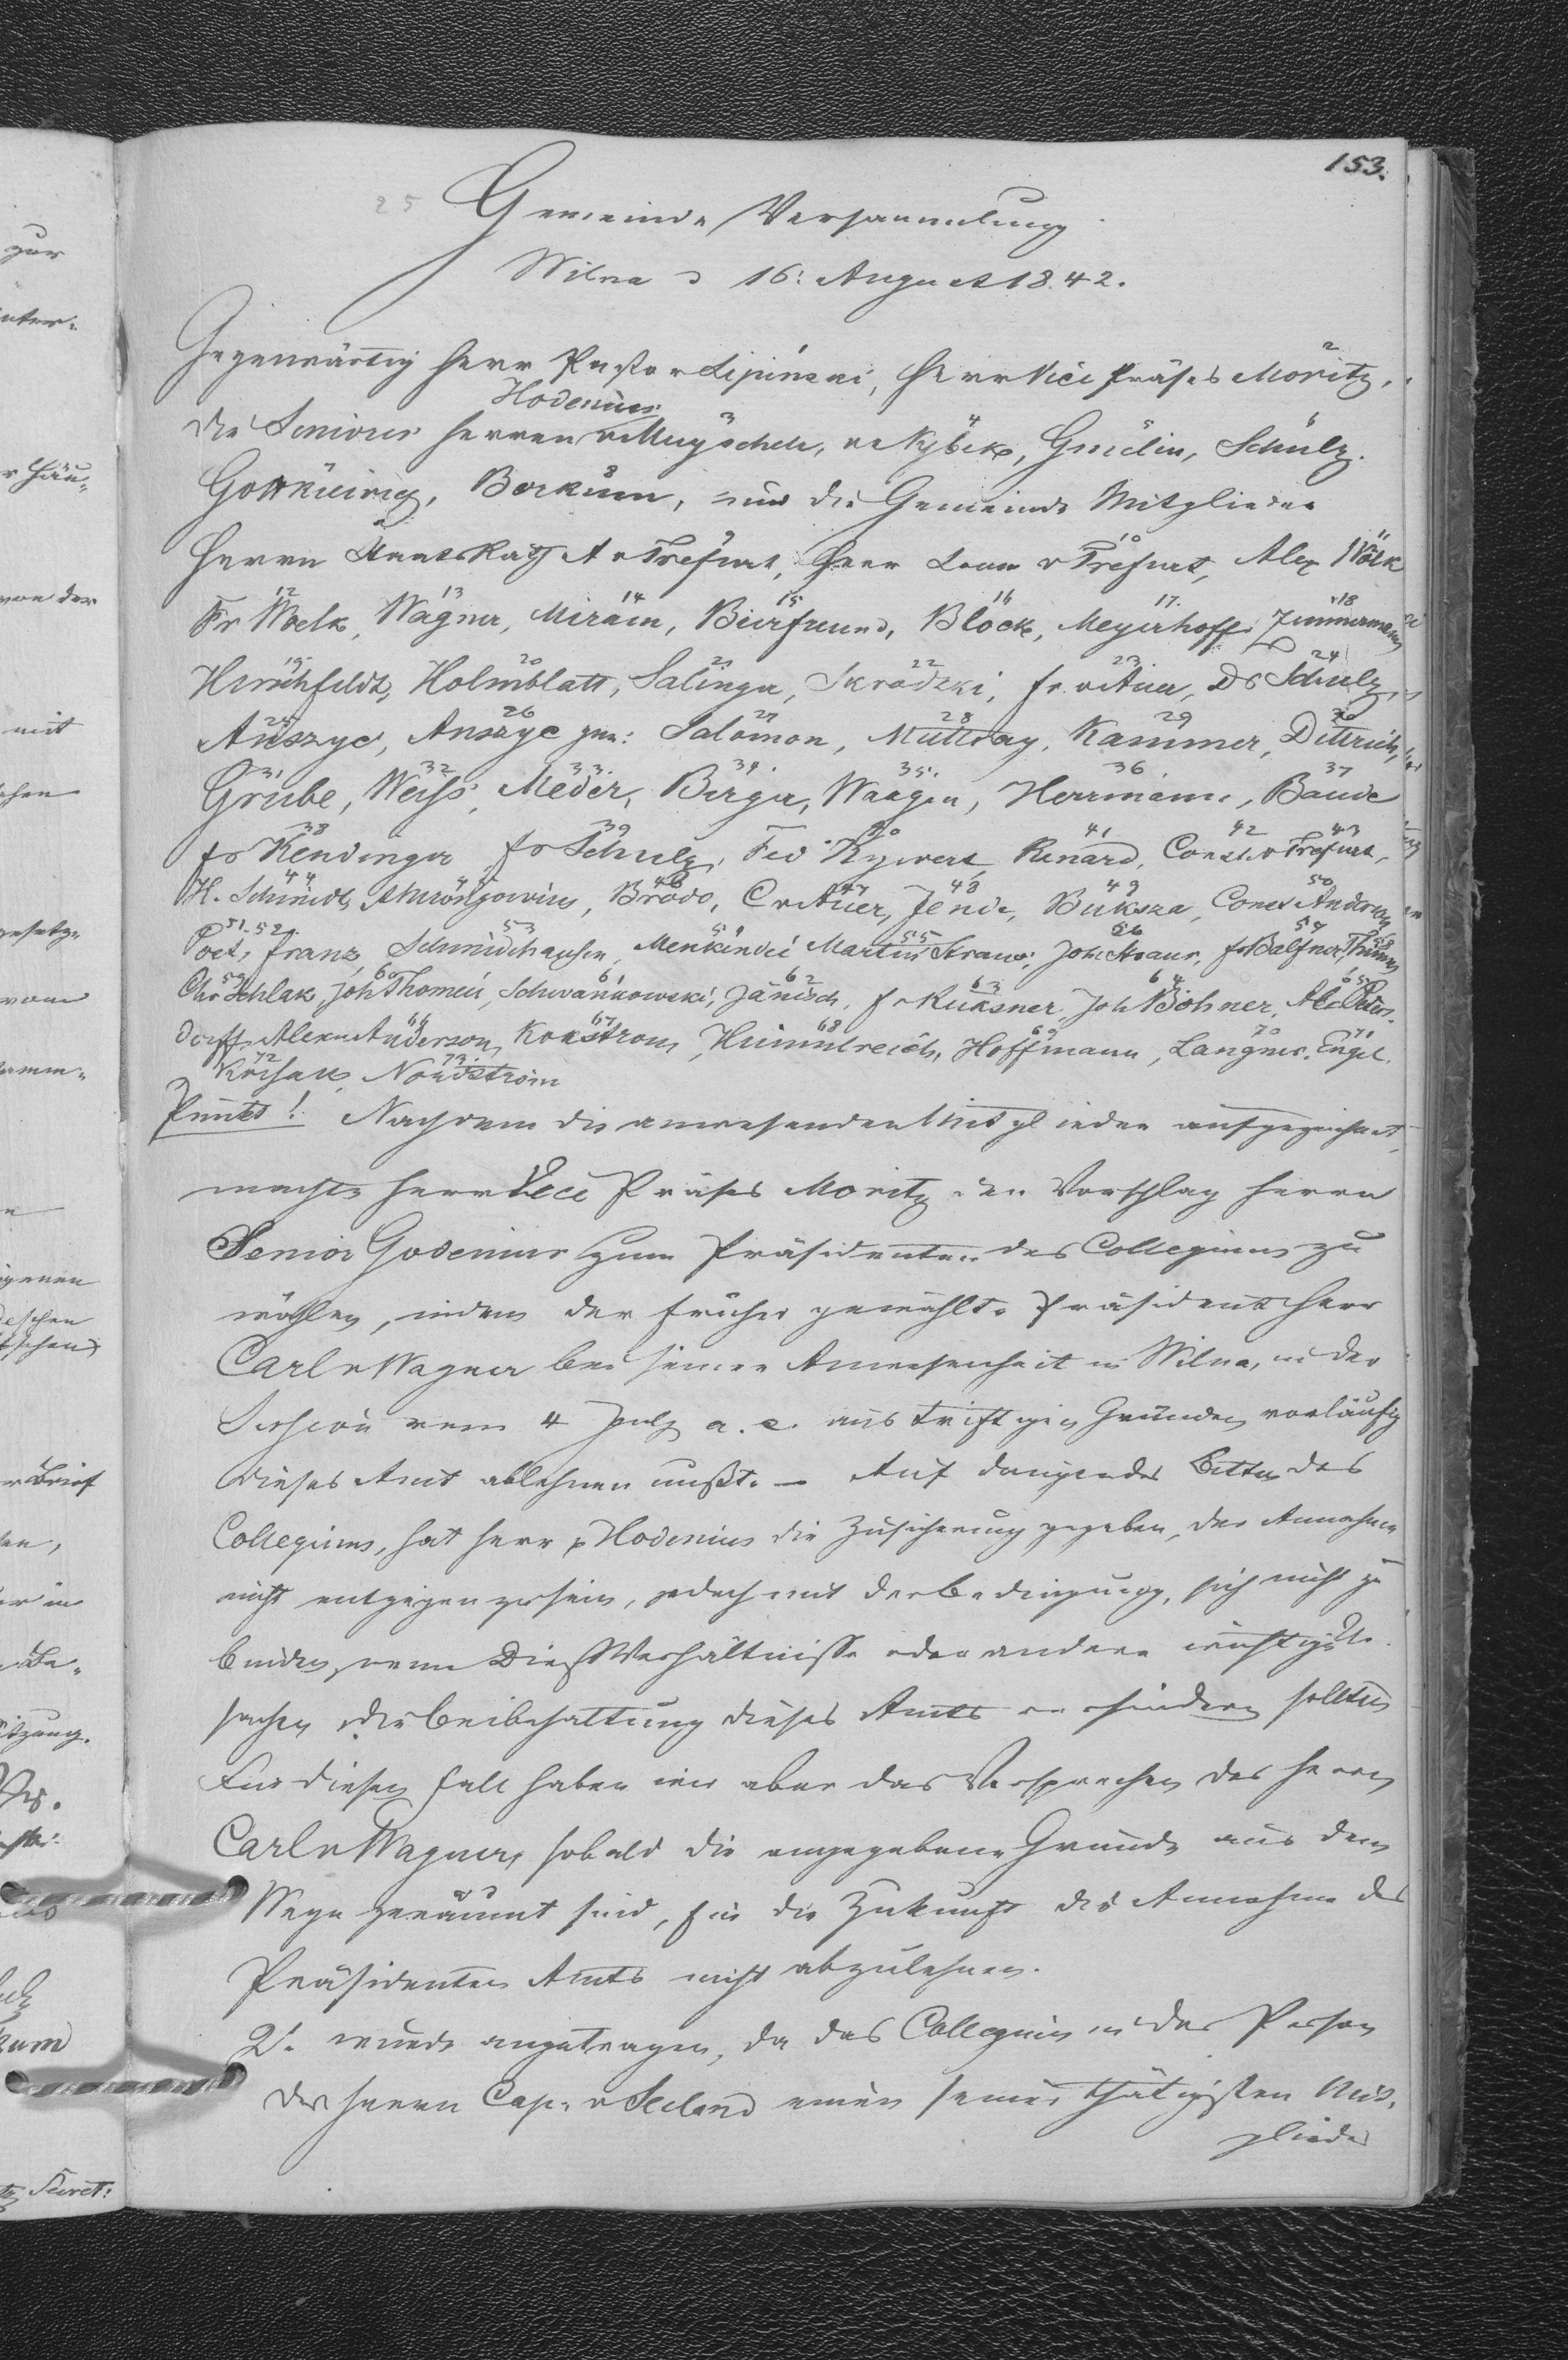 153.
25 Gemeinde Versammlung
Wilna d 16: August 1842.
Gegenwärtig Herr Pastor Lipinski, Herr Vice Präses Moritz,
Hodenius
die Seniores Herren v Mugschel, Gmelin, Schulz.
Borkum, und die Gemeinde Mitglieder
Herrn A v Trefurt, Herr v Trefurt, Alex Wölk
Fr Woelk, Wagner, Miram, Bierfreund, Block, Meyerhoff, Zimmermann
Hirschfeldt, Holmblatt, Salinger, Skrodzki, Fr v Auer, Dr Schulz,
Anszyc, Anszyc jun: Salomon, Muttray, Kammer, Dittrich,
Grube, Weiss, Meder, Berger, Waagen, Herrmann, Baude
Fr Kendinger, Fr Schulz, Renard, Const. v Trefurt,
H. Schmidt, Mrongowius, Brodo, C v Auer, Jende, Buksza, Const Anderson
Poet, Franz, Schmidthausen, Martin Straus, Joh Straus, Thoms
Chr Schlak, Joh Thomei, Schwankowski, Janisch, Fr Ruksner, Joh Böhner, Al. Peters-
dorff, Alexn Anderson, Himmelreich, Hoffmann, Langner, Engel.
Nordström
Punkt 1. Nachdem die anwesenden Mitglieder aufgezeichnet,
machte Herr Vice Präses Moritz den Vorschlag Herrn
Senior Godenius zum Präsidenten des Collegiums zu
wählen, indem der früher gewählte Präsident Herr
Carl v Wagner bei seiner Anwesenheit in Wilna, in der
Session vom 4 July a. c. aus triftigen Gründen vorläufig
dieses Amt ablehnen mußte. – Auf dringendes Bitten des
Collegiums, hat Herr v Hodenius die Zusicherung gegeben, der Annahme
nicht entgegen zu sein, jedoch mit der Bedingung, sich nicht zu
binden, wenn Dienstverhältnisse oder andere wichtige Ur-
sachen die Beibehaltung dieses Amts verhindern sollten
Für diesen Fall haben wir aber das Versprechen des Herrn
Carl v Wagner, sobald die angegebenen Gründe aus dem
Wege geräumt sind, für die Zukunft die Annahme des
Präsidenten Amts nicht abzulehnen.
2. wurde angetragen, da das Collegium in der Person
des Herrn Cap. v Seeland einen seiner thätigsten Mit-
glieder